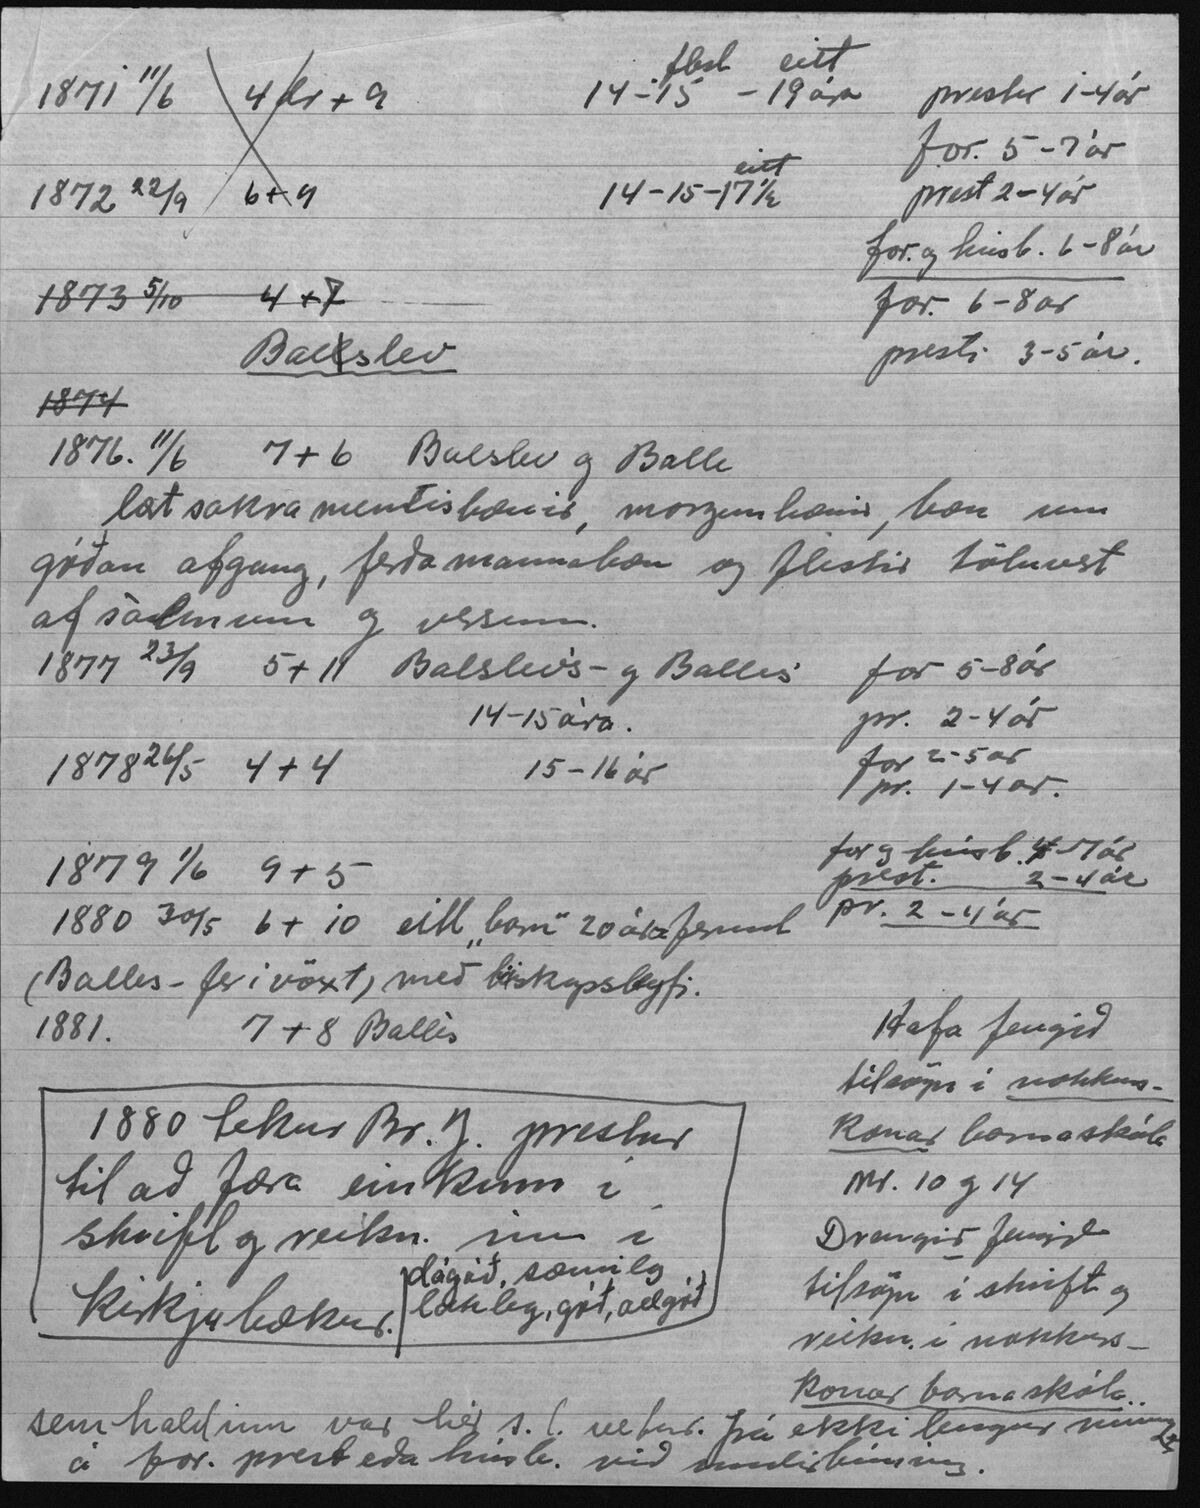 flest eitt
1871 11/6 4 dr + 9 14-15 - 19 ára prestur 1-4 ár
for. 5-7 ár
eitt
1872 22/9 6+9 14-15-17½ prest 2-4 ár
for. og húsb. 6-8 ár
1873 5/10 4+7 for. 6-8 ár
Balslev presti 3-5 ár.
1874
1876. 11/6 7+6 Balslev og Balle
lært sakramentisbænir, morgunbænir, bæn um
góðan afgang, ferðamannabæn og flestir töluvert
af sálmum og versum.
1877 23/9 5+11 Balslevs- og Balles for 5-8 ár
14-15 ára. pr. 2-4 ár
1878 26/5 4+4 15-16 ár for 2-5 ár
pr. 1-4 ár.
for og húsb. 4-7 ár
1879 1/6 9+5 prest. 2-4 ár
1880 30/5 6+10 eitt „barn" 20 ára fermt pr. 2-4 ár
(Balles - fer í vöxt) með biskupsleyfi.
1881. 7+8 Balles
Hafa fengið
tilsögn í nokkurs-
konar barnaskóla
Nr. 10 og 14
Drengir fengið
tilsögn í skrift og
reikn. í nokkurs-
konar barnaskóla
1880 tekur Br. J. prestur
til að færa einkunn í
skrift og reikn. inn í
kirkjubækur. dágóð, sæmileg
lakleg, góð, allgóð
sem haldinn var hér s.l. vetur. frá ekki lengur
á for. prest eða húsb. við undirbúning.